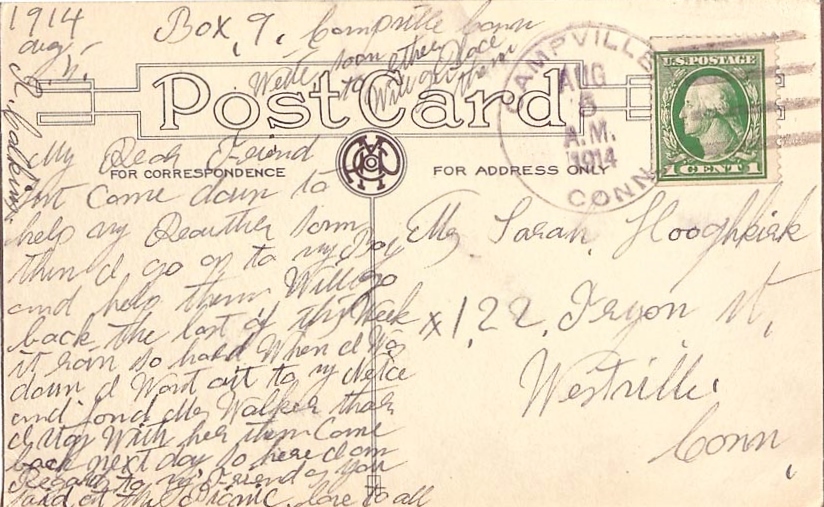 1914
Aug 5,
Box, 9, Campville Conn
Write soon
to other
Will
Post Card
U.S. POSTAGE
1 CENT 1
CAMPVILLE
AUG
5
A.M.
1914
CONN.
FOR CORRESPONDENCE
FOR ADDRESS ONLY
My Dear Friend
come down to
help my Daughter
then I go on to my Boy
and help them Will go
back the last of this Week
it rain so hard When I Was
down I Went out to my Neice
and fond Mrs Walker thar
I stay With her then Come
back next day so here I am
Regards to my Friends you
said at the Picnic, love to all
Mrs Sarah, Hooghkirk
x 122, Tryon St,
Westville
Conn,